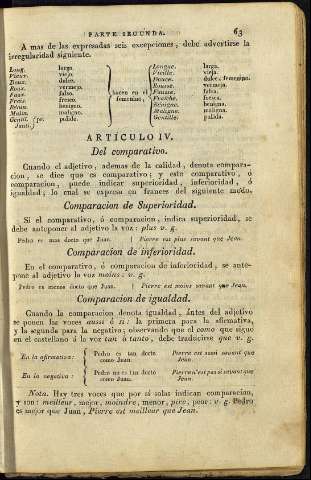 PARTE SEGUNDA. 63
A mas de las expresadas seis excepciones, debe advertirse la
irregularidad siguiente.
Long. largo. Longue. larga.
Vieux. viejo. Vieille. vieja.
Doux. dulce. Douce. dulce, femenino.
Roux. vermejo. Rousse. vermeja.
Faux. falso. hacen en el Fausse. falsa.
Frais. fresco. femenino; Fraîche. fresca.
Bénin. benigno. Bénigne. benigna.
Malin. maligno. maligna.
Gentil. (pr. pulido. Gentille. pulida.
Janti.)
ARTÍCULO IV.
Del comparativo.
Cuando el adjetivo, ademas de la calidad, denota compara-
cion, se dice que es comparativo; y este comparativo, ó
comparacion, puede indicar superioridad, inferioridad, ó
igualdad; lo cual se expresa en frances del siguiente modo.
Comparacion de Superioridad.
Si el comparativo, ó comparacion, indica superioridad, se
debe anteponer al adjetivo la voz: plus v. g.
Pedro es mas docto que Juan. | Pierre est plus savant que Jean.
Comparacion de inferioridad.
En el comparativo, ó comparacion de inferioridad, se ante-
pone al adjetivo la voz moins: v. g.
Pedro es menos docto que Juan. | Pierre est moins savant que Jean.
Comparacion de igualdad.
Cuando la comparacion denota igualdad, ántes del adjetivo
se ponen las voces aussi ó si: la primera para la afirmativa,
y la segunda para la negativa; observando que el como que sigue
en el castellano á la voz tan ó tanto, debe traducirse que v. g.
En la afirmativa: Pedro es tan docto como Juan. Pierre est aussi savant que Jean.
En la negativa: Pedro no es tan docto como Juan. Pierre n'est pas si savant que Jean.
Nota. Hay tres voces que por sí solas indican comparacion,
y son: meilleur, mejor, moindre, menor, pire, peor: v. g. Pedro
es mejor que Juan, Pierre est meilleur que Jean.